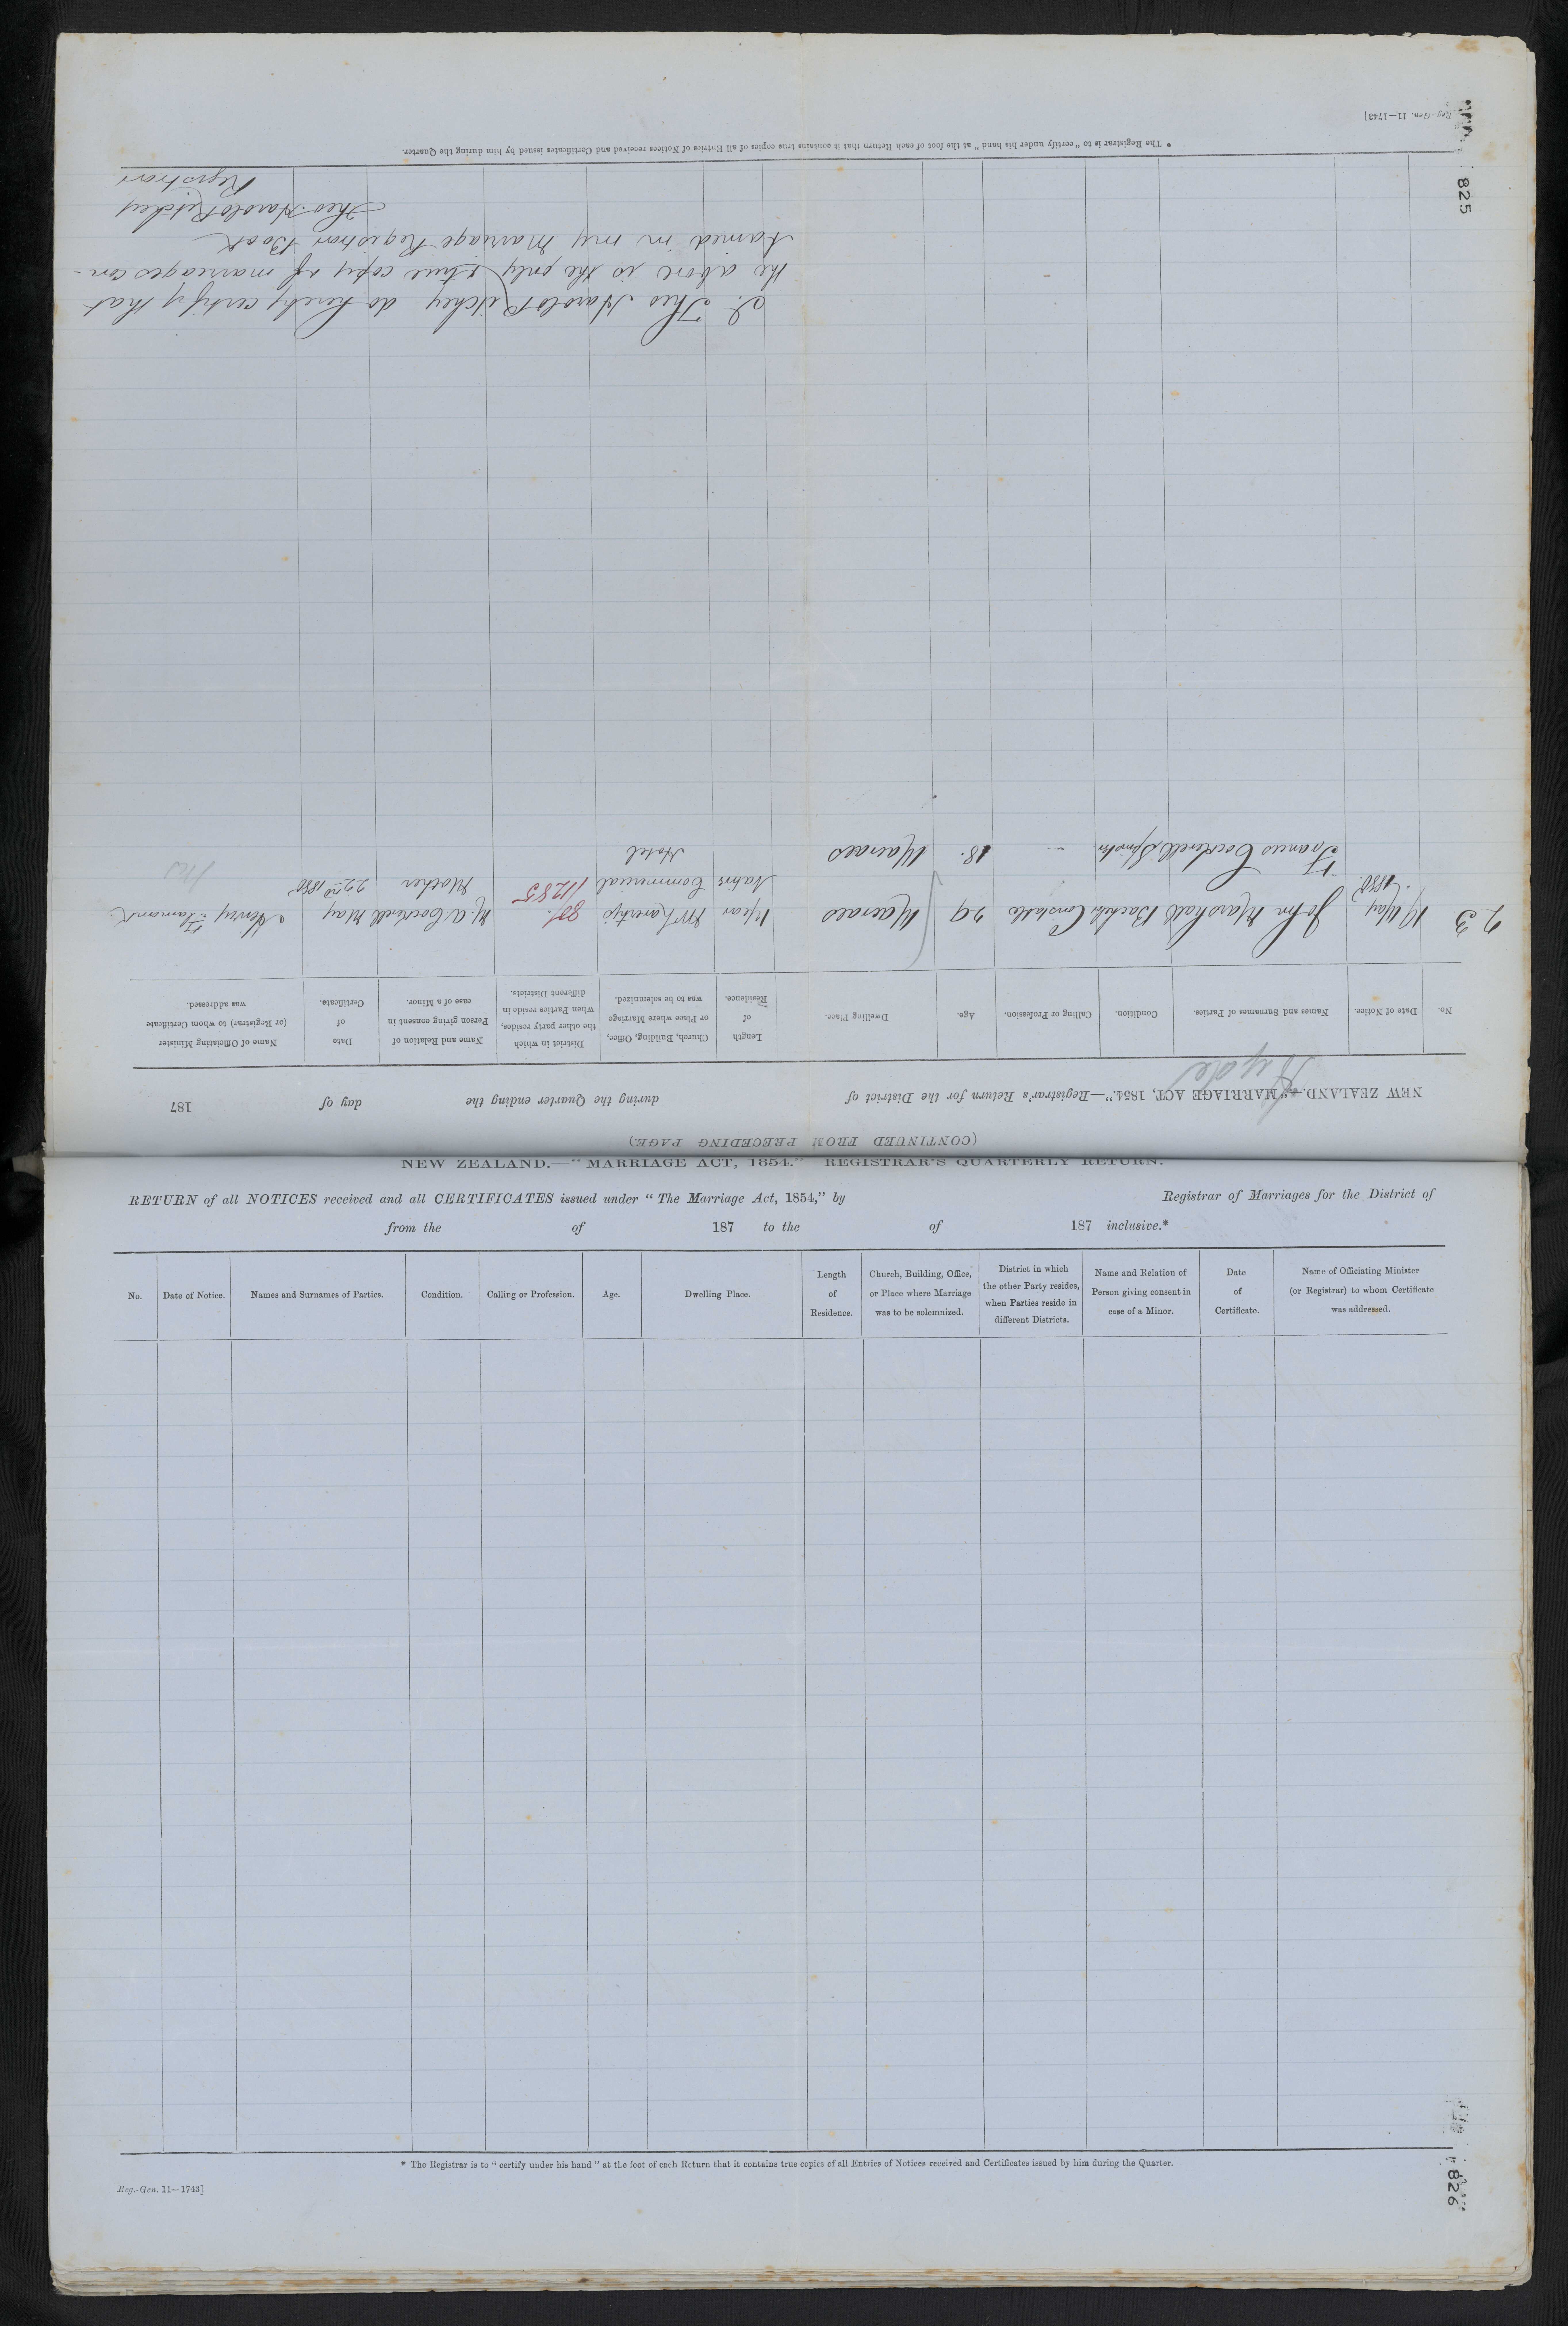 (CONTINUED FROM PRECEDING PAGE)
NEW ZEALAND.—"MARRIAGE ACT, 1854."—Registrar's Return for the District of Hyde during the Quarter ending the day of 187
No. Date of Notice. Names and Surnames of Parties. Condition. Calling or Profession. Age. Dwelling Place. Length of Residence. Church, Building, Office, or Place where Marriage was to be solemnized. District in which the other party resides, when Parties reside in different Districts. Name and Relation of Person giving consent in case of a Minor. Date of Certificate. Name of Officiating Minister (or Registrar) to whom Certificate was addressed.
23 May John Marshall Constable 29 Macraes 1 year May Henry
1880. Commercial 1/1285 Mother 22nd 1880
Spinster - 18. Macraes Hotel
I. Theo Harold Ritchey do hereby certify that
the above is the only true copy of marriages con-
tained in my Marriage Registrar Book
Theo. Harold Ritchey
Registrar
* The Registrar is to "certify under his hand" at the foot of each Return that it contains true copies of all Entries of Notices received and Certificates issued by him during the Quarter.
Reg.-Gen. 11—1743]
825
NEW ZEALAND.—"MARRIAGE ACT, 1854."—REGISTRAR'S QUARTERLY RETURN.
RETURN of all NOTICES received and all CERTIFICATES issued under "The Marriage Act, 1854," by Registrar of Marriages for the District of
from the of 187 to the of 187 inclusive.*
No. Date of Notice. Names and Surnames of Parties. Condition. Calling or Profession. Age. Dwelling Place. Length of Residence. Church, Building, Office, or Place where Marriage was to be solemnized. District in which the other Party resides, when Parties reside in different Districts. Name and Relation of Person giving consent in case of a Minor. Date of Certificate. Name of Officiating Minister (or Registrar) to whom Certificate was addressed.
* The Registrar is to "certify under his hand" at the foot of each Return that it contains true copies of all Entries of Notices received and Certificates issued by him during the Quarter.
Reg.-Gen. 11—1743]
826